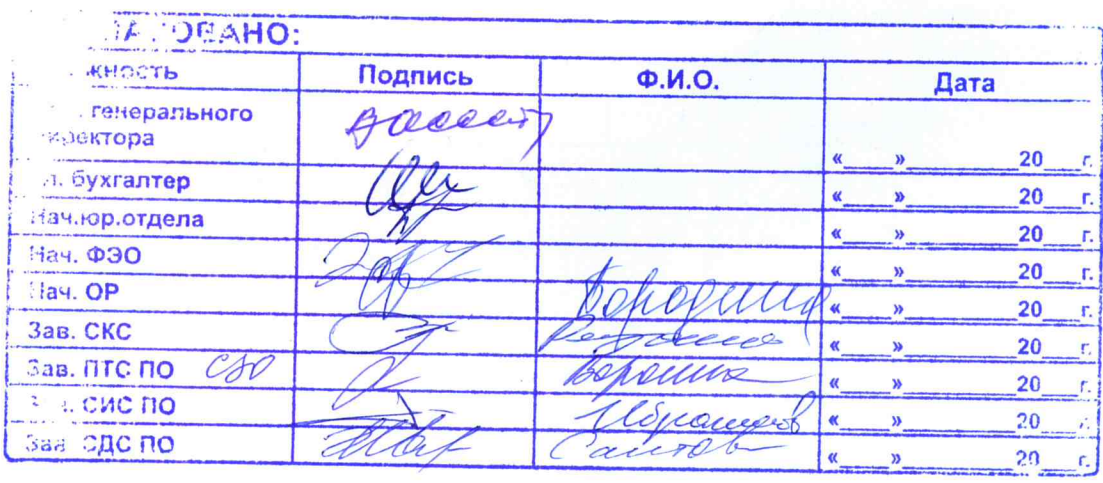 СОГЛАСОВАНО:
Должность Подпись Ф.И.О. Дата
генерального
директора «____»__________20___г.
Гл. бухгалтер «____»__________20___г.
Нач.юр.отдела «____»__________20___г.
Нач. ФЭО «____»__________20___г.
Нач. ОР Бородина «____»__________20___г.
Зав. СКС «____»__________20___г.
Зав. ПТС ПО СЗО Воронина «____»__________20___г.
Зав. СИС ПО Ибрагимов «____»__________20___г.
Зав. СДС ПО Саитов «____»__________20___г.